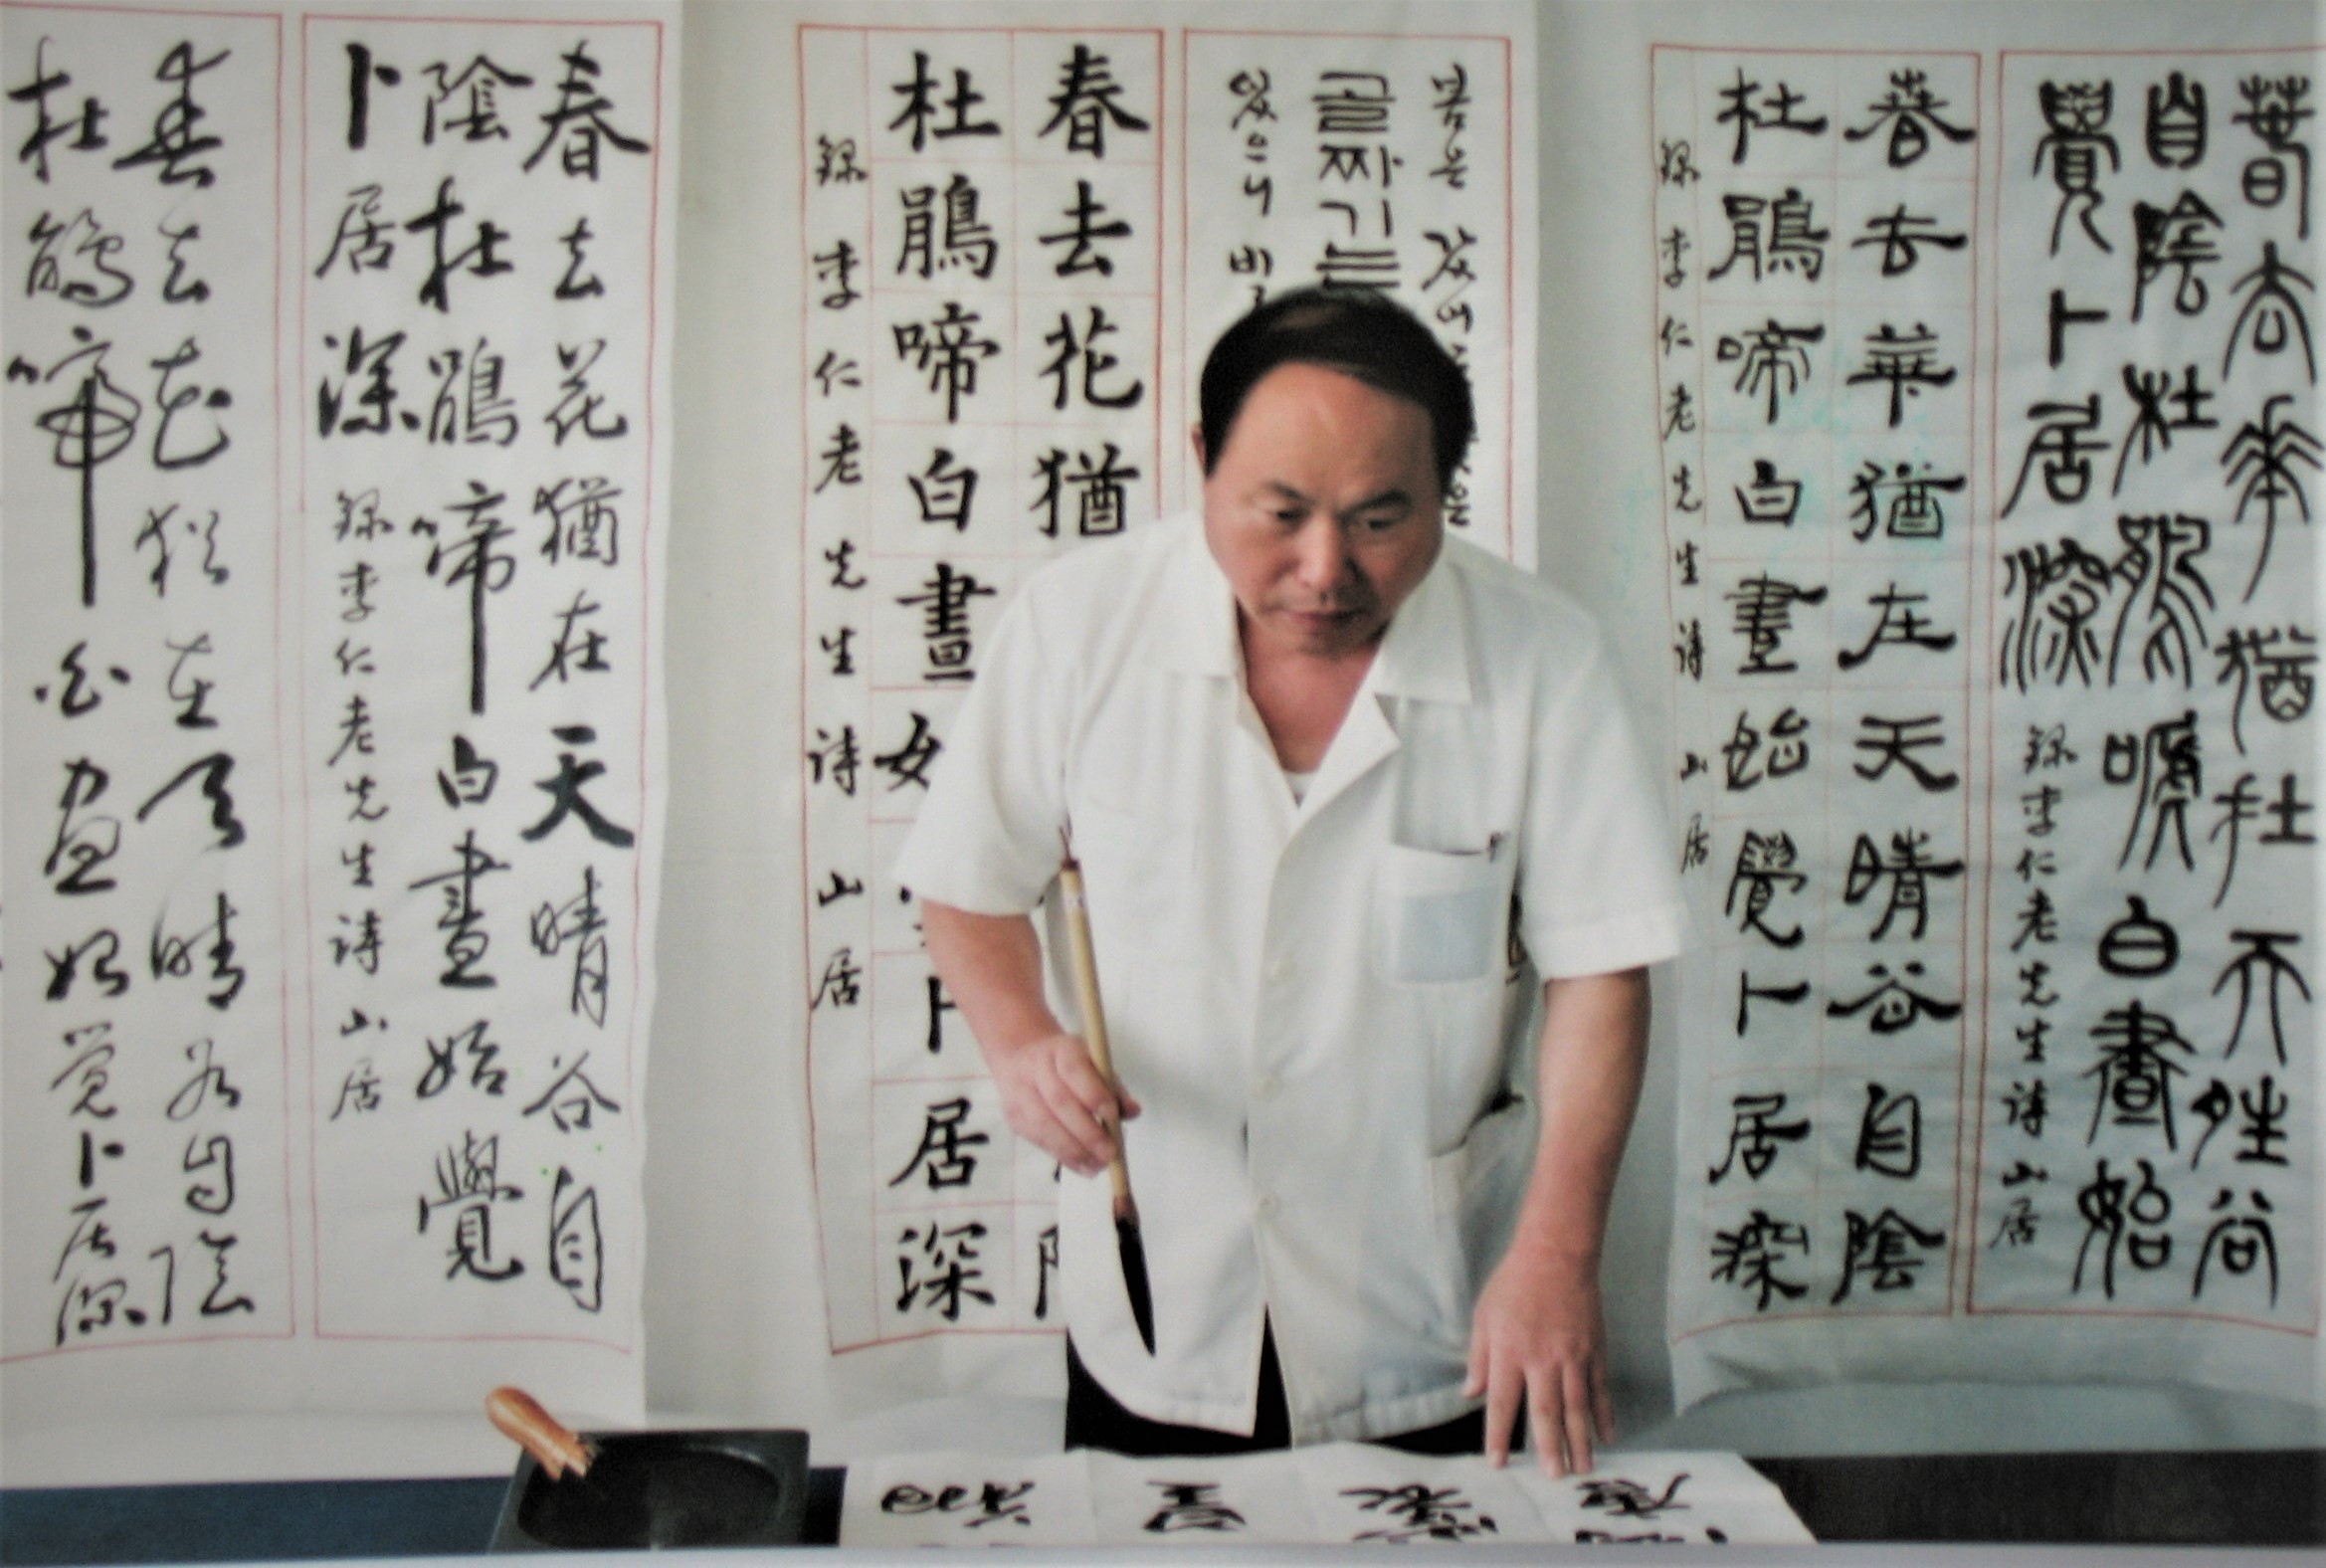 春去華猶在天晴谷
自陰杜鵑啼白晝始
覺卜居深 錄李仁老先生詩 山居
春去華猶在天晴谷自陰
杜鵑啼白晝始覺卜居深
錄李仁老先生詩 山居
봄은
골짜기는
있으니
春去花猶
杜鵑啼白晝 卜居深
錄李仁老先生詩 山居
春去花猶在天晴谷自
陰杜鵑啼白晝始覺
卜居深 錄李仁老先生詩 山居
春去花猶在天晴谷自陰
杜鵑啼白晝始覺卜居深